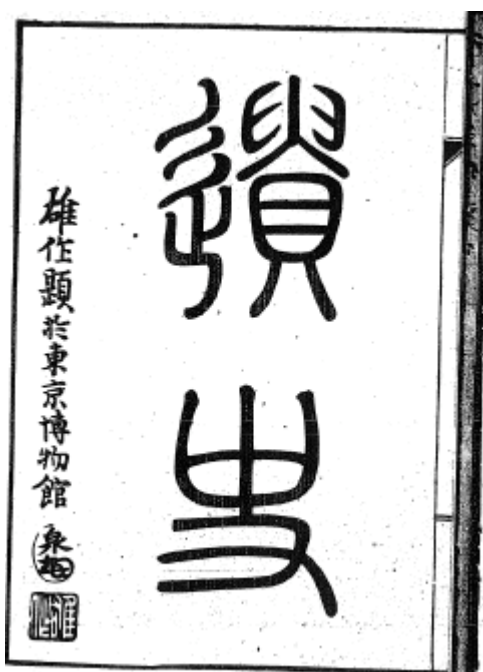 遺史
雄作題於東京博物館